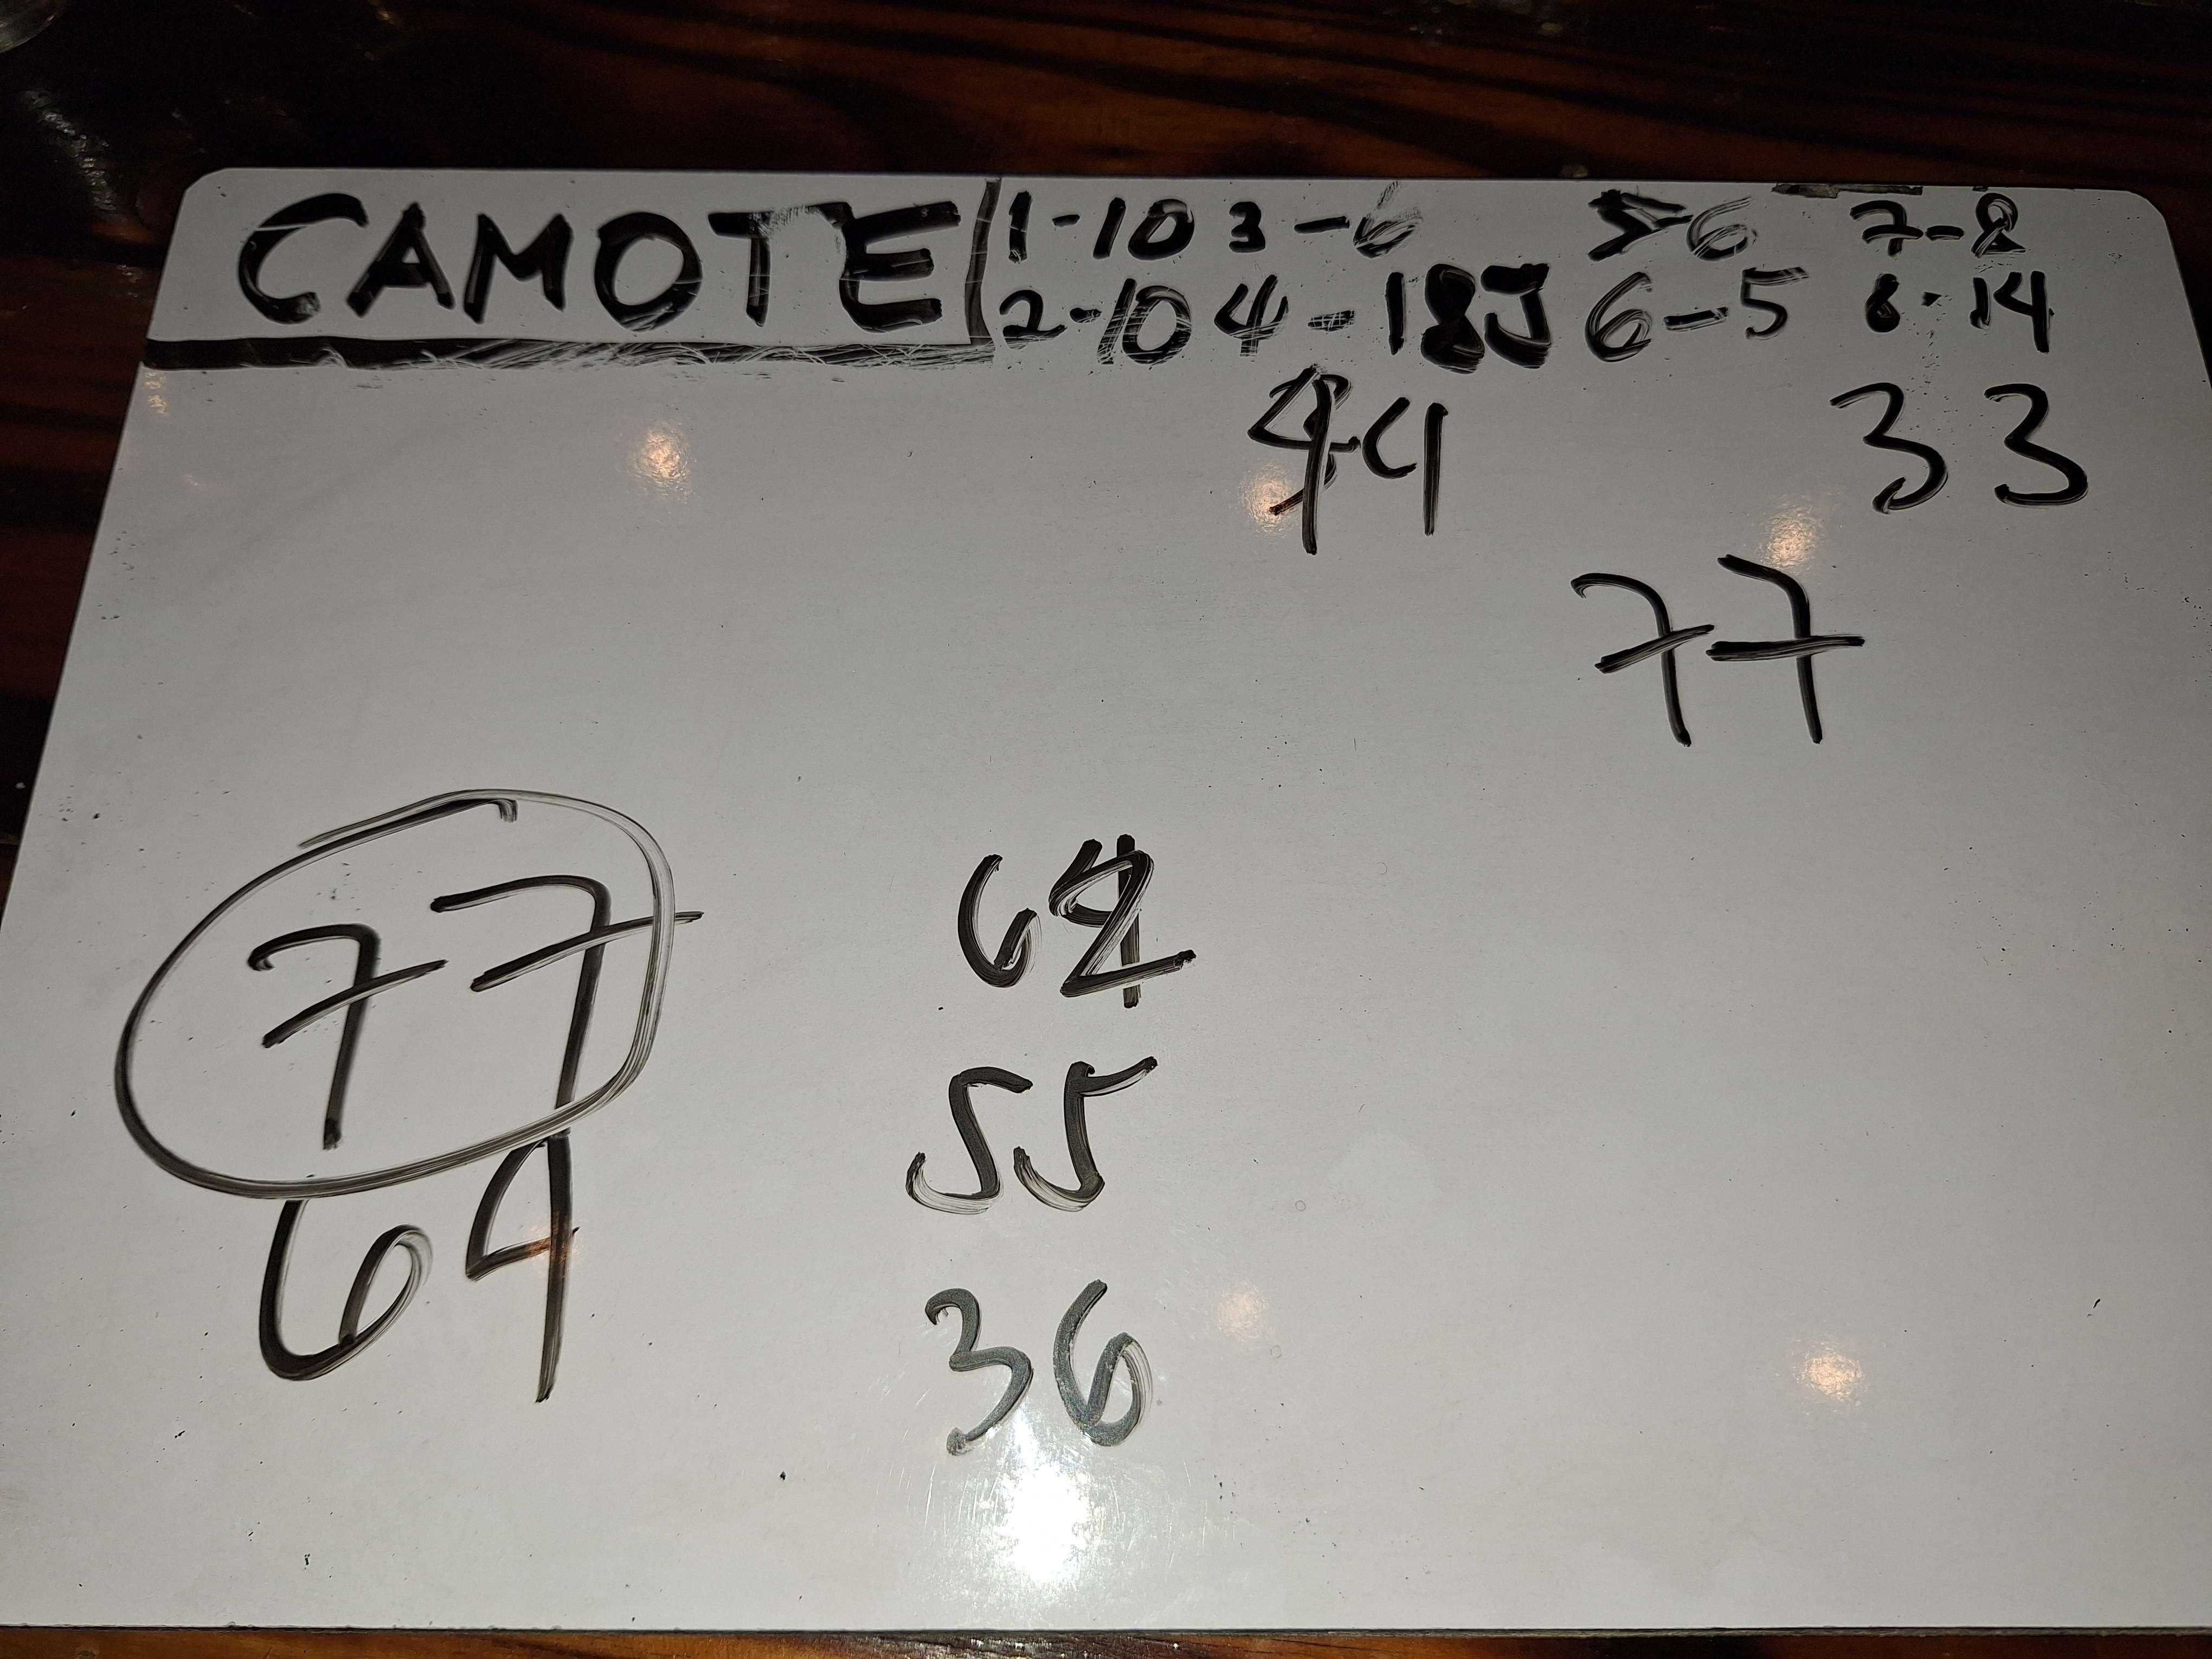 CAMOTE 1-10 3-6 5-6 7-8
2-10 4-18J 6-5 8-14
44 33
77
77 64
64 55
36